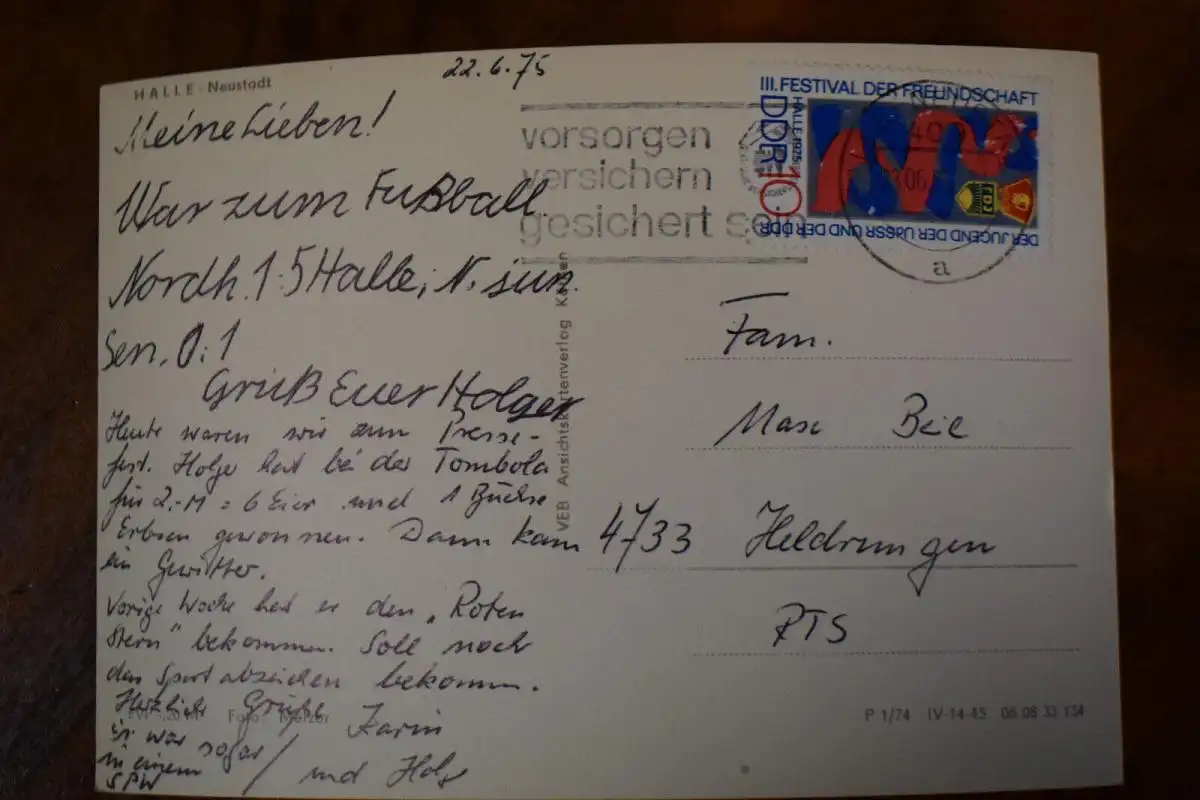 HALLE-Neustadt
22.6.75
Meine Lieben!
War zum Fußball.
Nordh. 1:5 Halle, N. jun.
Sen. 0:1
Gruß Euer Holger
Heute waren wir zum Presse-
fest. Holger hat bei der Tombola
für 2,-M = 6 Eier und 1 Büchse
Erbsen gewonnen. Dann kam
ein Gewitter.
Vorige Woche hat er den „Roten
Stern" bekommen. Soll noch
das Sportabzeichen bekomm.
Herzliche Grüße Karin
Er war sogar / und
in einem
SPW
Foto:
VEB Ansichtskartenverlag
vorsorgen
versichern
gesichert sein
III. FESTIVAL DER FREUNDSCHAFT
DDR 10
HALLE 1975
DER JUGEND DER UdSSR UND DER DDR
FDJ
a
Fam.
Max Beie
4733 Heldrungen
PTS
P 1/74 IV-14-45 06 08 33 134